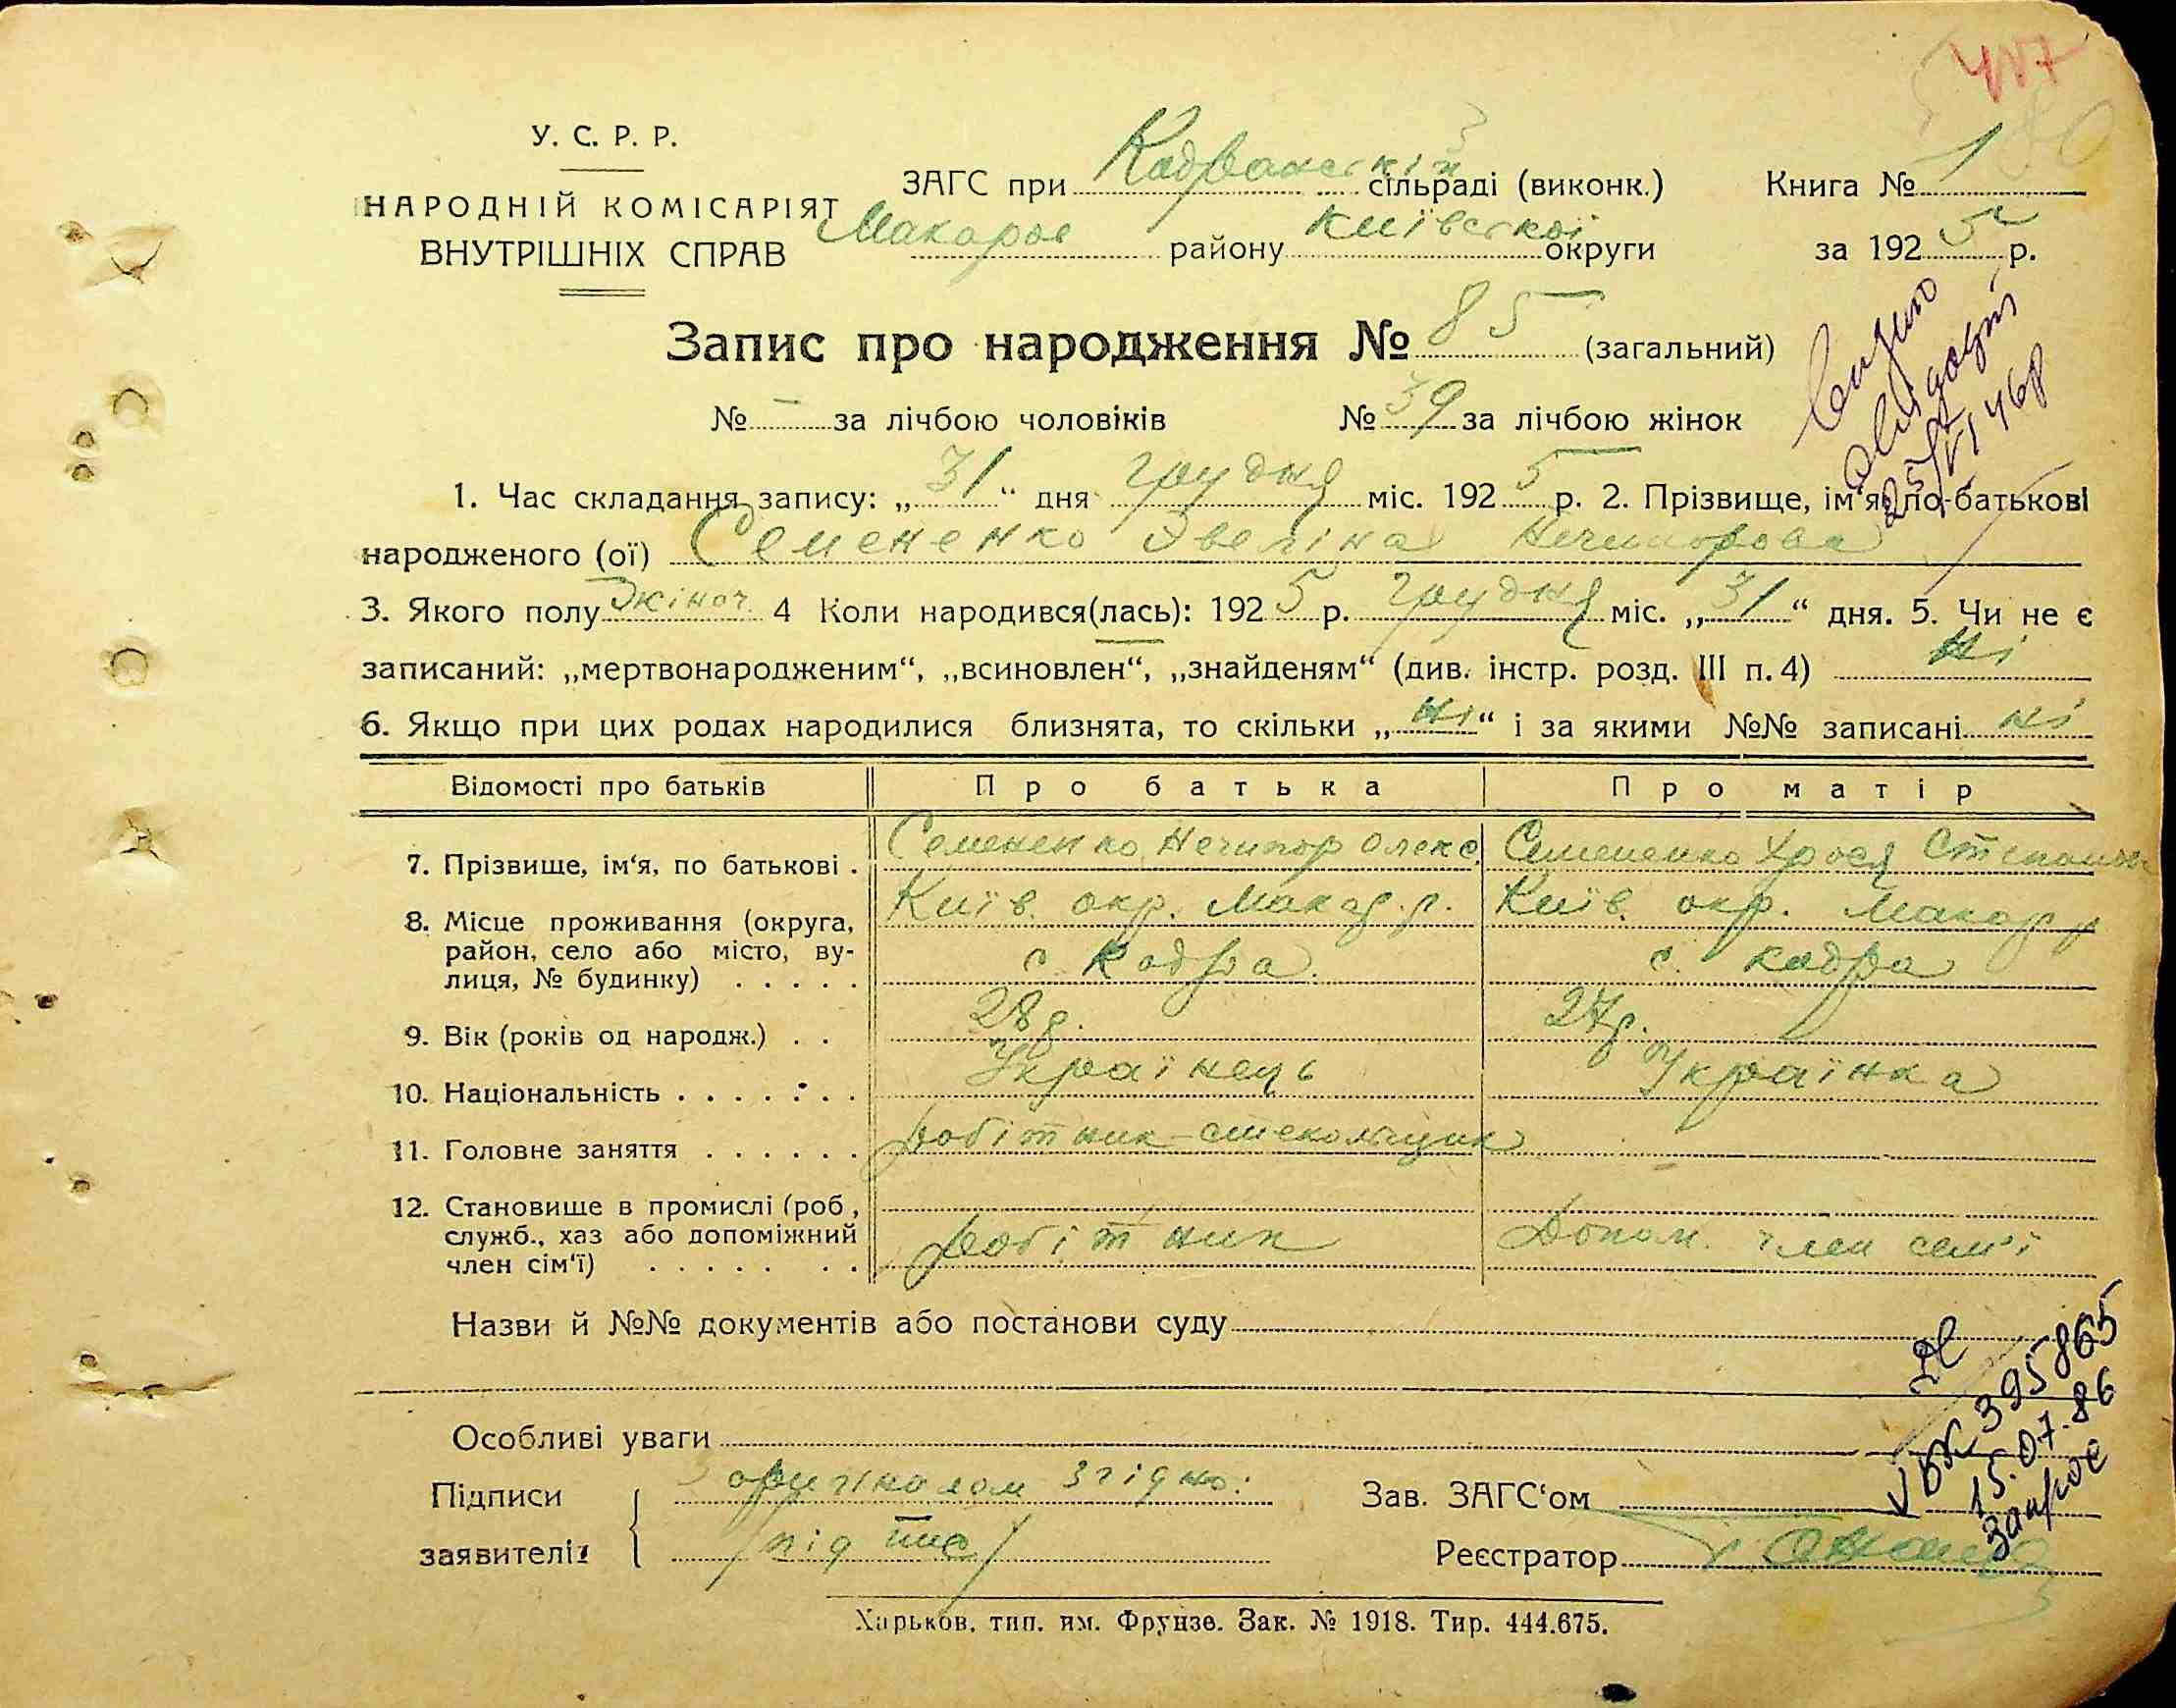 417
У. С. Р. Р.
НАРОДНІЙ КОМІСАРІЯТ
ВНУТРІШНІХ СПРАВ
ЗАГС при Кодранскій сільраді (виконк.)
Макаров району Київської округи
Книга № 1
за 1925 р.
Запис про народження № 85 (загальний)
№ — за лічбою чоловіків № 39 за лічбою жінок
1. Час складання запису: „31“ дня грудня міс. 1925 р. 2. Прізвище, ім‘я, по-батькові
народженого (ої) Семененко Звеліна Нечипорова
3. Якого полу жіноч. 4 Коли народився(лась): 1925 р. грудня міс. „31“ дня. 5. Чи не є
записаний: „мертвонародженим“, „всиновлен“, „знайденям“ (див. інстр. розд. III п. 4) ні
6. Якщо при цих родах народилися близнята, то скільки „ні“ і за якими №№ записані ні
Відомості про батьків Про батька Про матір
7. Прізвище, ім‘я, по батькові . Семененко Нечипор Олекс. Семененко Хрося Степанов
8. Місце проживання (округа, район, село або місто, вулиця, № будинку) . . . . . Київ. окр. Макар. р. с. Кодра. Київ. окр. Макар р с. Кодра
9. Вік (років од народж.) . . 28 р. 27 р.
10. Національність . . . . . . . Українець Українка
11. Головне заняття . . . . . . робітник-стекольщик —
12. Становище в промислі (роб, служб., хаз або допоміжний член сім‘ї) . . . . . . . робітник Допом. член сем'ї
Назви й №№ документів або постанови суду
Особливі уваги
Підписи заявителів З оригіналом згідно:
/підпис/
Зав. ЗАГС‘ом
Реєстратор
395865
15.07.86
Запрос
Харьков, тип. им. Фрунзе. Зак. № 1918. Тир. 444.675.